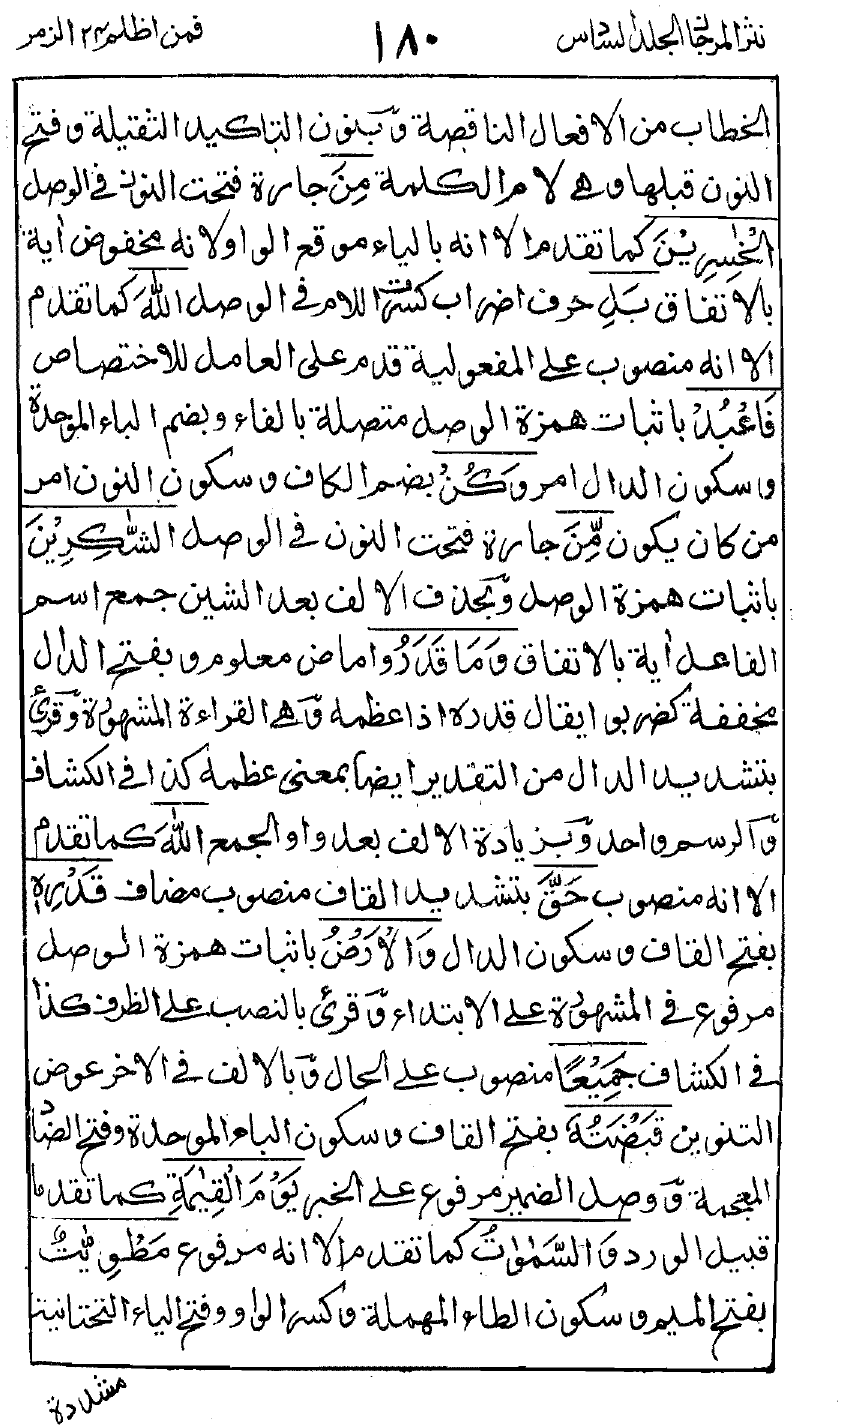 نثر المرجان الجلد السادس ١٨٠ فمن اظلم ٢٤ الزمر
الخطاب من الافعال الناقصة وّبنون التاكيد الثقيلة وفتح
النون قبلها وهي لام الكلمة مِنَ جارة فتحت النون في الوصل
الْخٰسِرِيْنَ كما تقدم الا انه بالياء موقع الواو لانه مخفوض اٰية
بالاتفاق بَلِ حرف اضراب كسرت اللام في الوصل اللّٰهَ كما تقدم
الا انه منصوب على المفعولية قدم على العامل للاختصاص
فَاعْبُدْ باثبات همزة الوصل متصلة بالفاء وبضم الباء الموحدة
وسكون الدال امر وَكُنْ بضم الكاف وسكون النون امر
من كان يكون مِّنَ جارة فتحت النون في الوصل الشّٰكِرِيْنَ
باثبات همزة الوصل وّبحذف الالف بعد الشين جمع اسم
الفاعل اٰية بالاتفاق وَمَا قَدَرُوا ماض معلوم وبفتح الدال
مخففة كضربوا يقال قدره اذا عظمه وّهي القراءة المشهورة وّقرئ
بتشديد الدال من التقدير ايضا بمعنى عظمه كذا في الكشاف
وّالرسم واحد وّبزيادة الالف بعد واو الجمع اللّٰهَ كما تقدم
الا انه منصوب حَقَّ بتشديد القاف منصوب مضاف قَدْرِهٖ
بفتح القاف وسكون الدال وَالْاَرْضُ باثبات همزة الوصل
مرفوع في المشهورة على الابتداء وّقرئ بالنصب على الظرف كذا
في الكشاف جَمِيْعًا منصوب على الحال وّبالالف في الاخر عوض
التنوين قَبْضَتُهٗ بفتح القاف وسكون الباء الموحدة وفتح الضاد
المعجمة وّوصل الضمير مرفوع على الخبر يَوْمَ الْقِيٰمَةِ كما تقدما
قبيل الورد وَالسَّمٰوٰتُ كما تقدم الا انه مرفوع مَطْوِيّٰتٌ
بفتح الميم وسكون الطاء المهملة وكسر الواو وفتح الياء التحتانية
مشددة